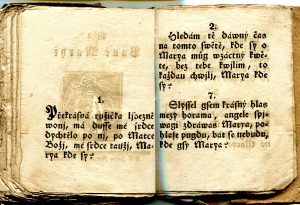 1.
Překrásná růžička ljbezně
wonj, má dusse mé srdce
dychtělo po nj, po Matce
Božj, mé srdce taužj, Ma-
rya kde sy?
2.
Hledám tě dáwný čas
na tomto swětě, kde sy o
Marya můg wzáctný kwě-
te, bez tebe kwjljm, to
každau chwjlj, Marya kde
sy?
7.
Slyssel gsem krásný hlas
mezy horama, angele spj-
wagj zdráwas Marya, po
hlase pugdu, bát se nebudu,
kde gsy Marya?